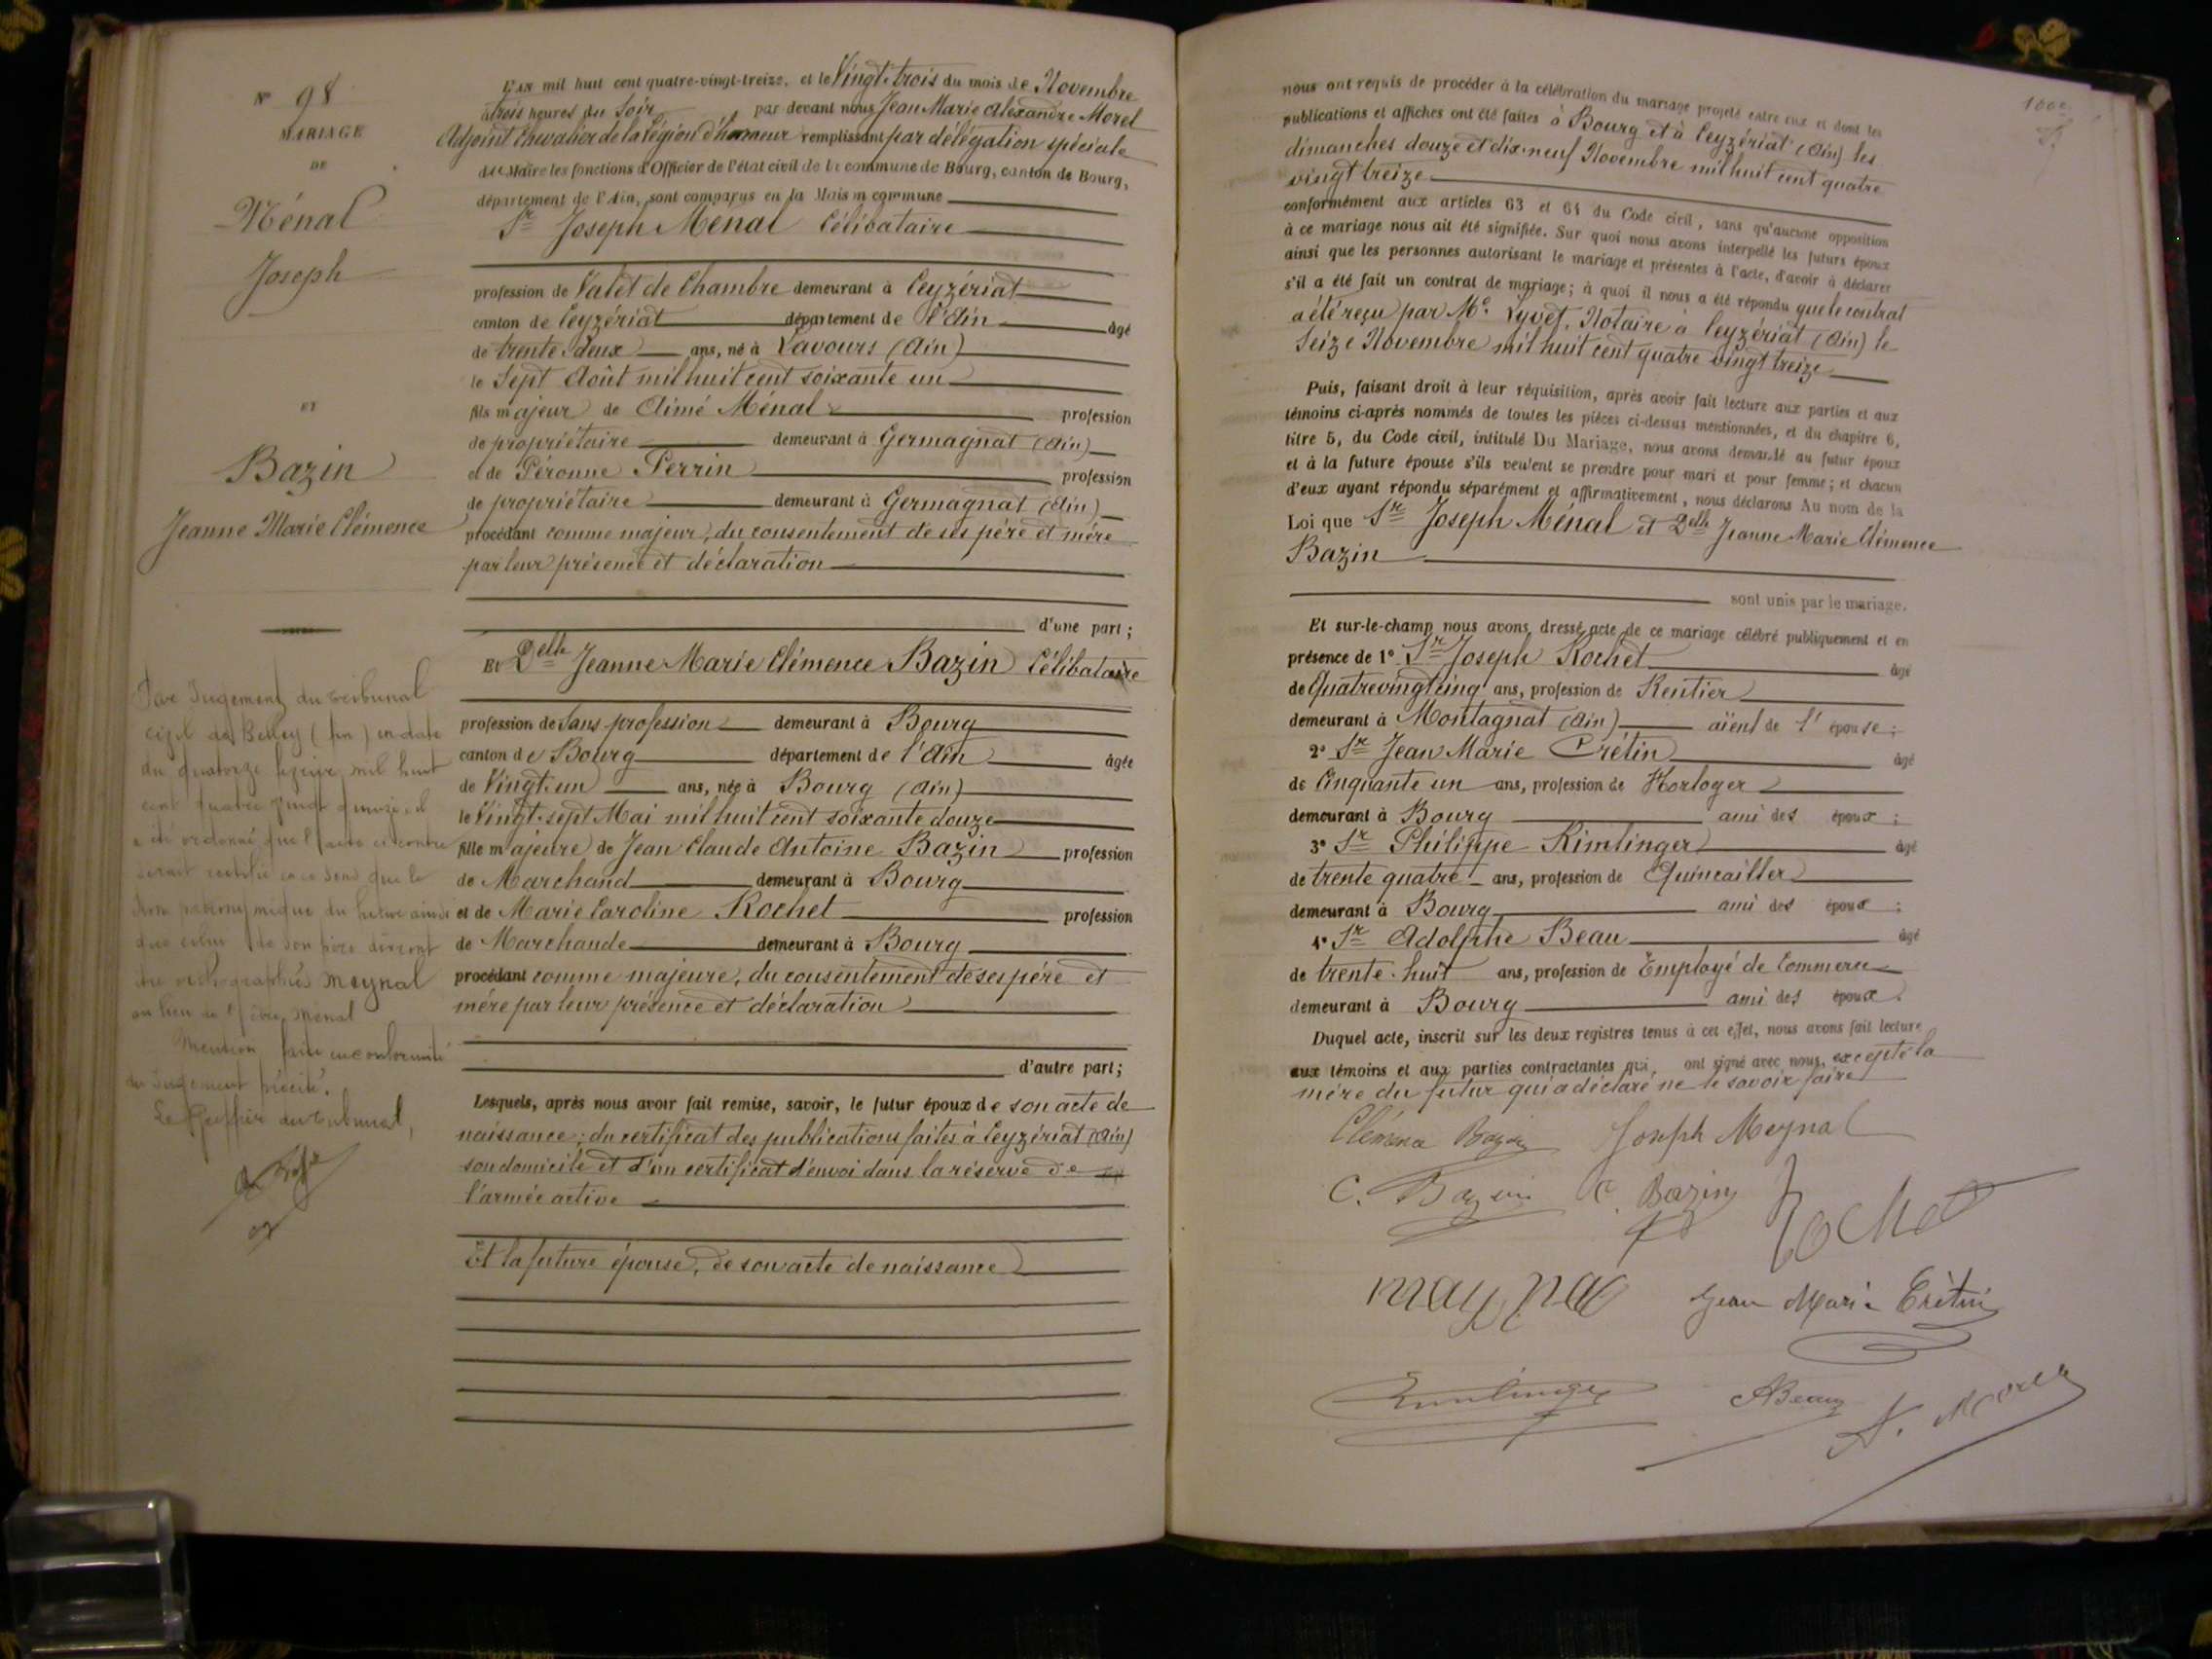 N° 98
MARIAGE
DE
Ménal
Joseph
ET
Bazin
Jeanne Marie Clémence
Par Jugement du tribunal
civil de Belley (Ain) en date
du quatorze février mil huit
cent quatre vingt quinze, il
a été ordonné que l'acte ci contre
serait rectifié en ce sens que le
nom patronymique du ainsi
que celui de son père devront
être orthographiés Meynal
au lieu de l'être Ménal
Mention faite en conformité
du Jugement précité.
Le Greffier du tribunal,
L'AN mil huit cent quatre-vingt-treize, et le Vingt-trois du mois de Novembre
à trois heures du Soir par devant nous Jean Marie Alexandre Morel
Adjoint Chevalier de la Légion d'honneur remplissant par délégation spéciale
du Maire les fonctions d'Officier de l'état civil de la commune de Bourg, canton de Bourg,
département de l'Ain, sont comparus en la Maison commune
Sr Joseph Menal Célibataire
profession de Valet de Chambre demeurant à Ceyzériat
canton de Ceyzériat département de l'Ain âgé
de trente deux ans, né à Lavours (Ain)
le Sept Août mil huit cent soixante un
fils majeur de Aimé Ménal profession
de propriétaire demeurant à Germagnat (Ain)
et de Péronne Perrin profession
de propriétaire demeurant à Germagnat (Ain)
procédant comme majeur, du consentement de ses père et mère
par leur présence et déclaration
d'une part ;
Et Delle Jeanne Marie Clémence Bazin Célibataire
profession de Sans profession demeurant à Bourg
canton de Bourg département de l'Ain âgée
de Vingt-un ans, née à Bourg (Ain)
le Vingt-sept Mai mil huit cent soixante douze
fille majeure de Jean Claude Antoine Bazin profession
de Marchand demeurant à Bourg
et de Marie Caroline Rochet profession
de Marchande demeurant à Bourg
procédant comme majeure, du consentement de ses père et
mère par leur présence et déclaration
d'autre part ;
Lesquels, après nous avoir fait remise, savoir, le futur époux de son acte de
naissance ; du certificat des publications faites à Ceyzériat (Ain)
son domicile et d'un certificat d'envoi dans la réserve de
l'armée active
Et la future épouse, de son acte de naissance
nous ont requis de procéder à la célébration du mariage projeté entre eux et dont les
publications et affiches ont été faites à Bourg et à Ceyzériat (Ain) les
dimanches douze et dix-neuf Novembre mil huit cent quatre
vingt treize
conformément aux articles 63 et 64 du Code civil, sans qu'aucune opposition
à ce mariage nous ait été signifiée. Sur quoi nous avons interpellé les futurs époux
ainsi que les personnes autorisant le mariage et présentes à l'acte, d'avoir à déclarer
s'il a été fait un contrat de mariage ; à quoi il nous a été répondu que le contrat
a été reçu par Me Lyvet, Notaire à Ceyzériat (Ain) le
Seize Novembre mil huit cent quatre vingt treize
Puis, faisant droit à leur réquisition, après avoir fait lecture aux parties et aux
témoins ci-après nommés de toutes les pièces ci-dessus mentionnées, et du chapitre 6,
titre 5, du Code civil, intitulé Du Mariage, nous avons demandé au futur époux
et à la future épouse s'ils veulent se prendre pour mari et pour femme ; et chacun
d'eux ayant répondu séparément et affirmativement, nous déclarons Au nom de la
Loi que Sr Joseph Ménal et Delle Jeanne Marie Clémence
Bazin
sont unis par le mariage.
Et sur-le-champ nous avons dressé acte de ce mariage célébré publiquement et en
présence de 1° Sr Joseph Rochet âgé
de Quatrevingt cinq ans, profession de Rentier
demeurant à Montagnat (Ain) aïeul de l'épouse ;
2° Sr Jean Marie Crétin âgé
de Cinquante un ans, profession de Horloger
demeurant à Bourg ami des époux ;
3° Sr Philippe Rimlinger âgé
de trente quatre ans, profession de Quincailler
demeurant à Bourg ami des époux ;
4° Sr Adolphe Beau âgé
de trente-huit ans, profession de Employé de Commerce
demeurant à Bourg ami des époux.
Duquel acte, inscrit sur les deux registres tenus à cet effet, nous avons fait lecture
aux témoins et aux parties contractantes qui, ont signé avec nous, excepté la
mère du futur qui a déclaré ne le savoir faire
Clémence Bazin Joseph Meynal
C. Bazin C. Bazin
Rochet
maynal Jean Marie Crétin
Rimlinger ABeau A. Morel